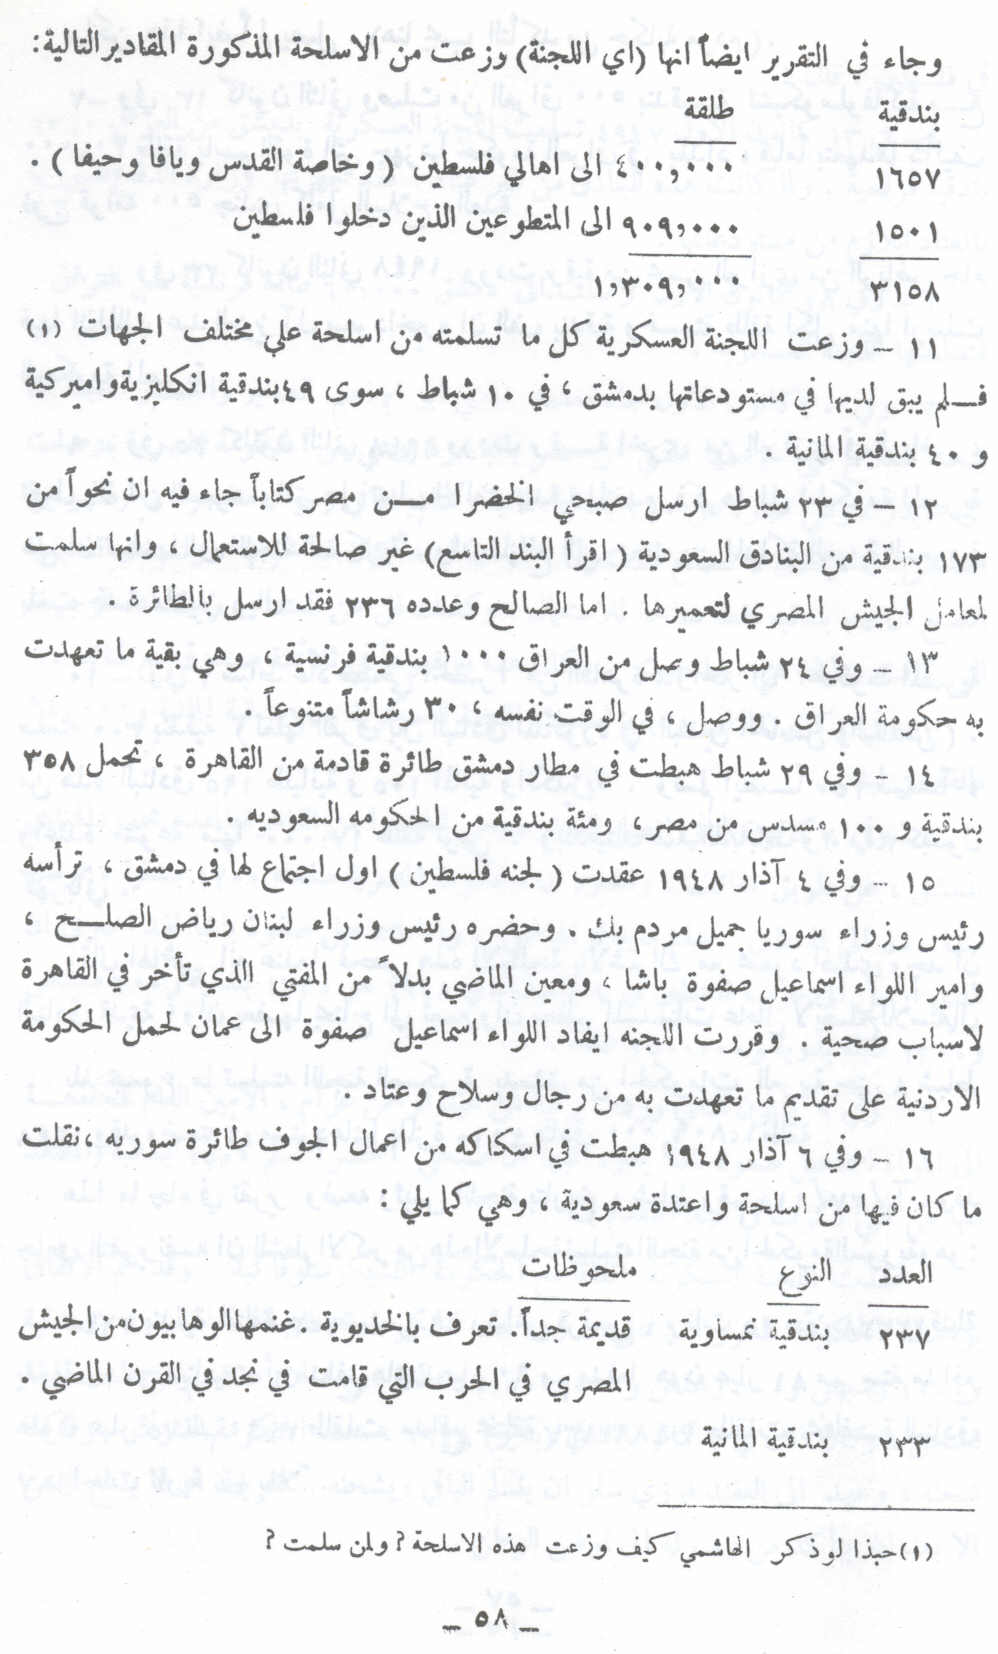 وجاء في التقرير ايضاً انها (اي اللجنة) وزعت من الاسلحة المذكورة المقادير التالية:
بندقية طلقة
١٦٥٧ ٤٠٠,٠٠٠ الى اهالي فلسطين ( وخاصة القدس ويافا وحيفا ) .
١٥٠١ ٩٠٩,٠٠٠ الى المتطوعين الذين دخلوا فلسطين
٣١٥٨ ١,٣٠٩,٠٠٠
١١ – وزعت اللجنة العسكرية كل ما تسلمته من اسلحة علي مختلف الجهات (١)
فلم يبق لديها في مستودعاتها بدمشق ، في ١٠ شباط ، سوى ٤٩ بندقية انكليزية واميركية
و ٤٠ بندقية المانية .
١٢ – في ٢٣ شباط ارسل صبحي الخضرا من مصر كتاباً جاء فيه ان نحواً من
١٧٣ بندقية من البنادق السعودية ( اقرأ البند التاسع ) غير صالحة للاستعمال ، وانها سلمت
لمعامل الجيش المصري لتعميرها . اما الصالح وعدده ٢٣٦ فقد ارسل بالطائرة .
١٣ – وفي ٢٤ شباط وصل من العراق ١٠٠٠ بندقية فرنسية ، وهي بقية ما تعهدت
به حكومة العراق . ووصل ، في الوقت نفسه ، ٣٠ رشاشاً متنوعاً .
١٤ – وفي ٢٩ شباط هبطت في مطار دمشق طائرة قادمة من القاهرة ، تحمل ٣٥٨
بندقية و ١٠٠ مسدس من مصر ، ومئة بندقية من الحكومه السعوديه .
١٥ – وفي ٤ آذار ١٩٤٨ عقدت ( لجنه فلسطين ) اول اجتماع لها في دمشق ، ترأسه
رئيس وزراء سوريا جميل مردم بك . وحضره رئيس وزراء لبنان رياض الصلح ،
وامير اللواء اسماعيل صفوة باشا ، ومعين الماضي بدلاً من المفتي الذي تأخر في القاهرة
لاسباب صحية . وقررت اللجنه ايفاد اللواء اسماعيل صفوة الى عمان لحمل الحكومة
الاردنية على تقديم ما تعهدت به من رجال وسلاح وعتاد .
١٦ – وفي ٦ آذار ١٩٤٨ هبطت في اسكاكه من اعمال الجوف طائرة سوريه ، نقلت
ما كان فيها من اسلحة واعتدة سعودية ، وهي كما يلي :
العدد النوع ملحوظات
٢٣٧ بندقية نمساوية قديمة جداً . تعرف بالخديوية . غنمها الوهابيون من الجيش
المصري في الحرب التي قامت في نجد في القرن الماضي .
٢٣٣ بندقية المانية
(١) حبذا لو ذكر الهاشمي كيف وزعت هذه الاسلحة ؟ ولمن سلمت ؟
– ٥٨ –